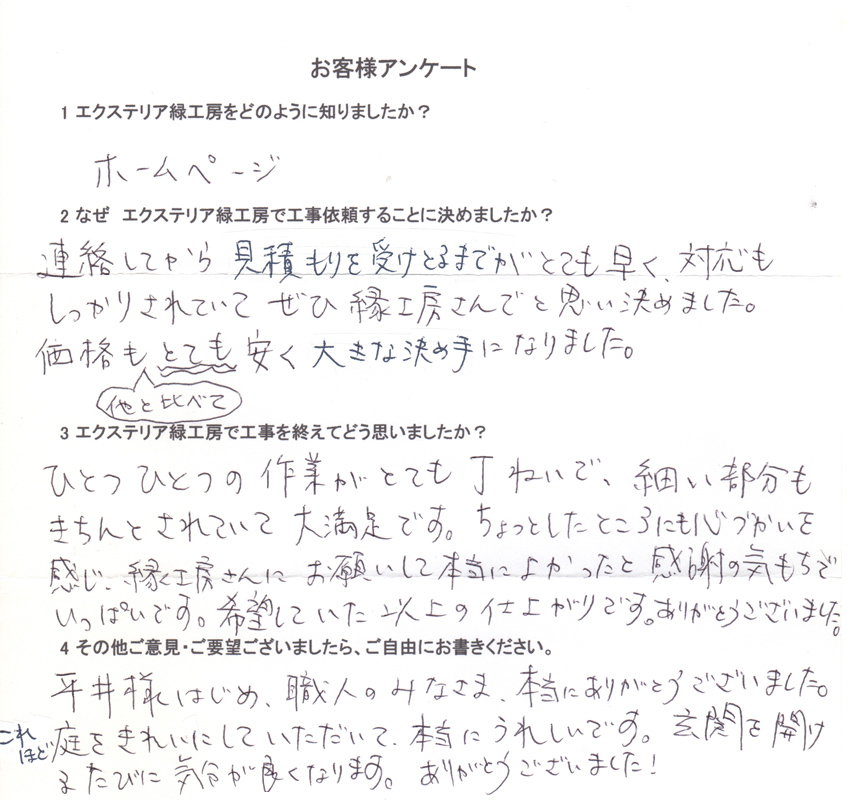 お客様アンケート
1 エクステリア緑工房をどのように知りましたか？
ホームページ
2 なぜ エクステリア緑工房で工事依頼することに決めましたか？
連絡してから見積もりを受けとるまでがとても早く、対応も
しっかりされていてぜひ縁工房さんでと思い決めました。
価格もとても安く大きな決め手になりました。
他と比べて
3 エクステリア緑工房で工事を終えてどう思いましたか？
ひとつひとつの作業がとても丁ねいで、細い部分も
きちんとされていて大満足です。ちょっとしたところにも心づかいを
感じ、縁工房さんにお願いして本当によかったと感謝の気もちで
いっぱいです。希望していた以上の仕上がりです。ありがとうございました。
4 その他ご意見・ご要望ございましたら、ご自由にお書きください。
平井様はじめ、職人のみなさま、本当にありがとうございました。
これほど庭をきれいにしていただいて、本当にうれしいです。玄関を開け
るたびに気分が良くなります。ありがとうございました！